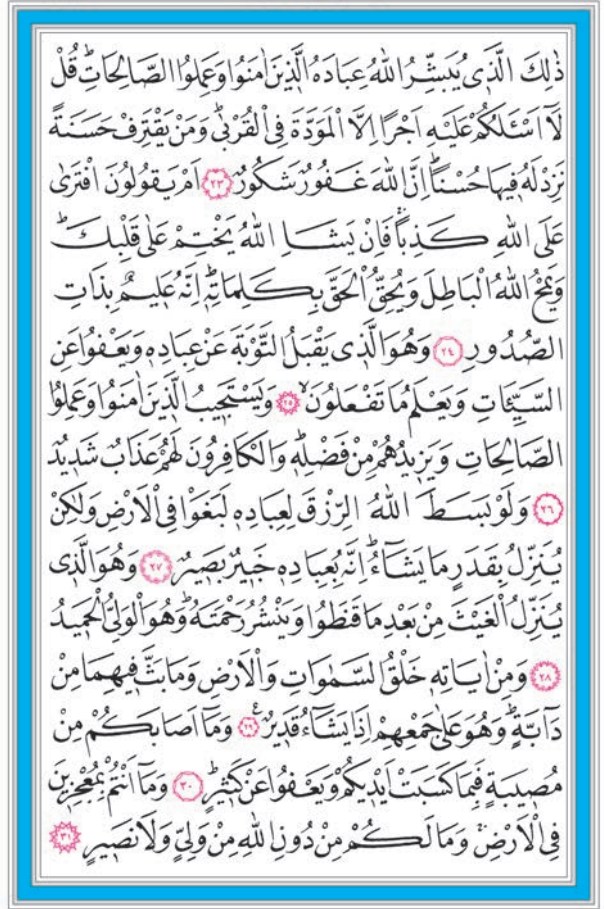 ذٰلِكَ الَّذٖى يُبَشِّرُ اللّٰهُ عِبَادَهُ الَّذٖينَ اٰمَنُوا وَعَمِلُوا الصَّالِحَاتِؕ قُلْ
لَٓا اَسْـَٔلُكُمْ عَلَيْهِ اَجْرًا اِلَّا الْمَوَدَّةَ فِى الْقُرْبٰىؕ وَمَنْ يَقْتَرِفْ حَسَنَةً
نَزِدْ لَهُ فٖيهَا حُسْنًاؕ اِنَّ اللّٰهَ غَفُورٌ شَكُورٌ ﴿٢٣﴾ اَمْ يَقُولُونَ افْتَرٰى
عَلَى اللّٰهِ كَذِبًاۚ فَاِنْ يَشَأِ اللّٰهُ يَخْتِمْ عَلٰى قَلْبِكَؕ
وَيَمْحُ اللّٰهُ الْبَاطِلَ وَيُحِقُّ الْحَقَّ بِكَلِمَاتِهٖؕ اِنَّهُ عَلٖيمٌ بِذَاتِ
الصُّدُورِ ﴿٢٤﴾ وَهُوَ الَّذٖى يَقْبَلُ التَّوْبَةَ عَنْ عِبَادِهٖ وَيَعْفُوا عَنِ
السَّيِّـَٔاتِ وَيَعْلَمُ مَا تَفْعَلُونَۙ ﴿٢٥﴾ وَيَسْتَجٖيبُ الَّذٖينَ اٰمَنُوا وَعَمِلُوا
الصَّالِحَاتِ وَيَزٖيدُهُمْ مِنْ فَضْلِهٖؕ وَالْكَافِرُونَ لَهُمْ عَذَابٌ شَدٖيدٌ
﴿٢٦﴾ وَلَوْ بَسَطَ اللّٰهُ الرِّزْقَ لِعِبَادِهٖ لَبَغَوْا فِى الْاَرْضِ وَلٰكِنْ
يُنَزِّلُ بِقَدَرٍ مَا يَشَٓاءُؕ اِنَّهُ بِعِبَادِهٖ خَبٖيرٌ بَصٖيرٌ ﴿٢٧﴾ وَهُوَ الَّذٖى
يُنَزِّلُ الْغَيْثَ مِنْ بَعْدِ مَا قَنَطُوا وَيَنْشُرُ رَحْمَتَهُؕ وَهُوَ الْوَلِىُّ الْحَمٖيدُ
﴿٢٨﴾ وَمِنْ اٰيَاتِهٖ خَلْقُ السَّمٰوَاتِ وَالْاَرْضِ وَمَا بَثَّ فٖيهِمَا مِنْ
دَٓابَّةٍؕ وَهُوَ عَلٰى جَمْعِهِمْ اِذَا يَشَٓاءُ قَدٖيرٌ ﴿٢٩﴾ وَمَٓا اَصَابَكُمْ مِنْ
مُصٖيبَةٍ فَبِمَا كَسَبَتْ اَيْدٖيكُمْ وَيَعْفُوا عَنْ كَثٖيرٍؕ ﴿٣٠﴾ وَمَٓا اَنْتُمْ بِمُعْجِزٖينَ
فِى الْاَرْضِۚ وَمَا لَكُمْ مِنْ دُونِ اللّٰهِ مِنْ وَلِىٍّ وَلَا نَصٖيرٍ ﴿٣١﴾